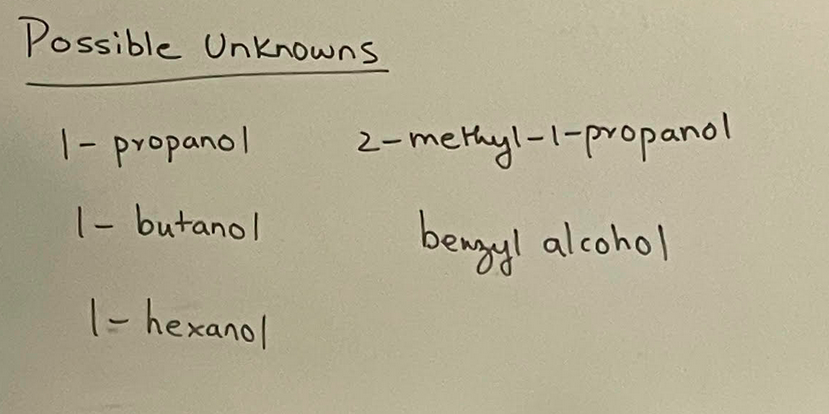 Possible Unknowns
1- propanol
2-methyl-1-propanol
1- butanol
benzyl alcohol
1- hexanol